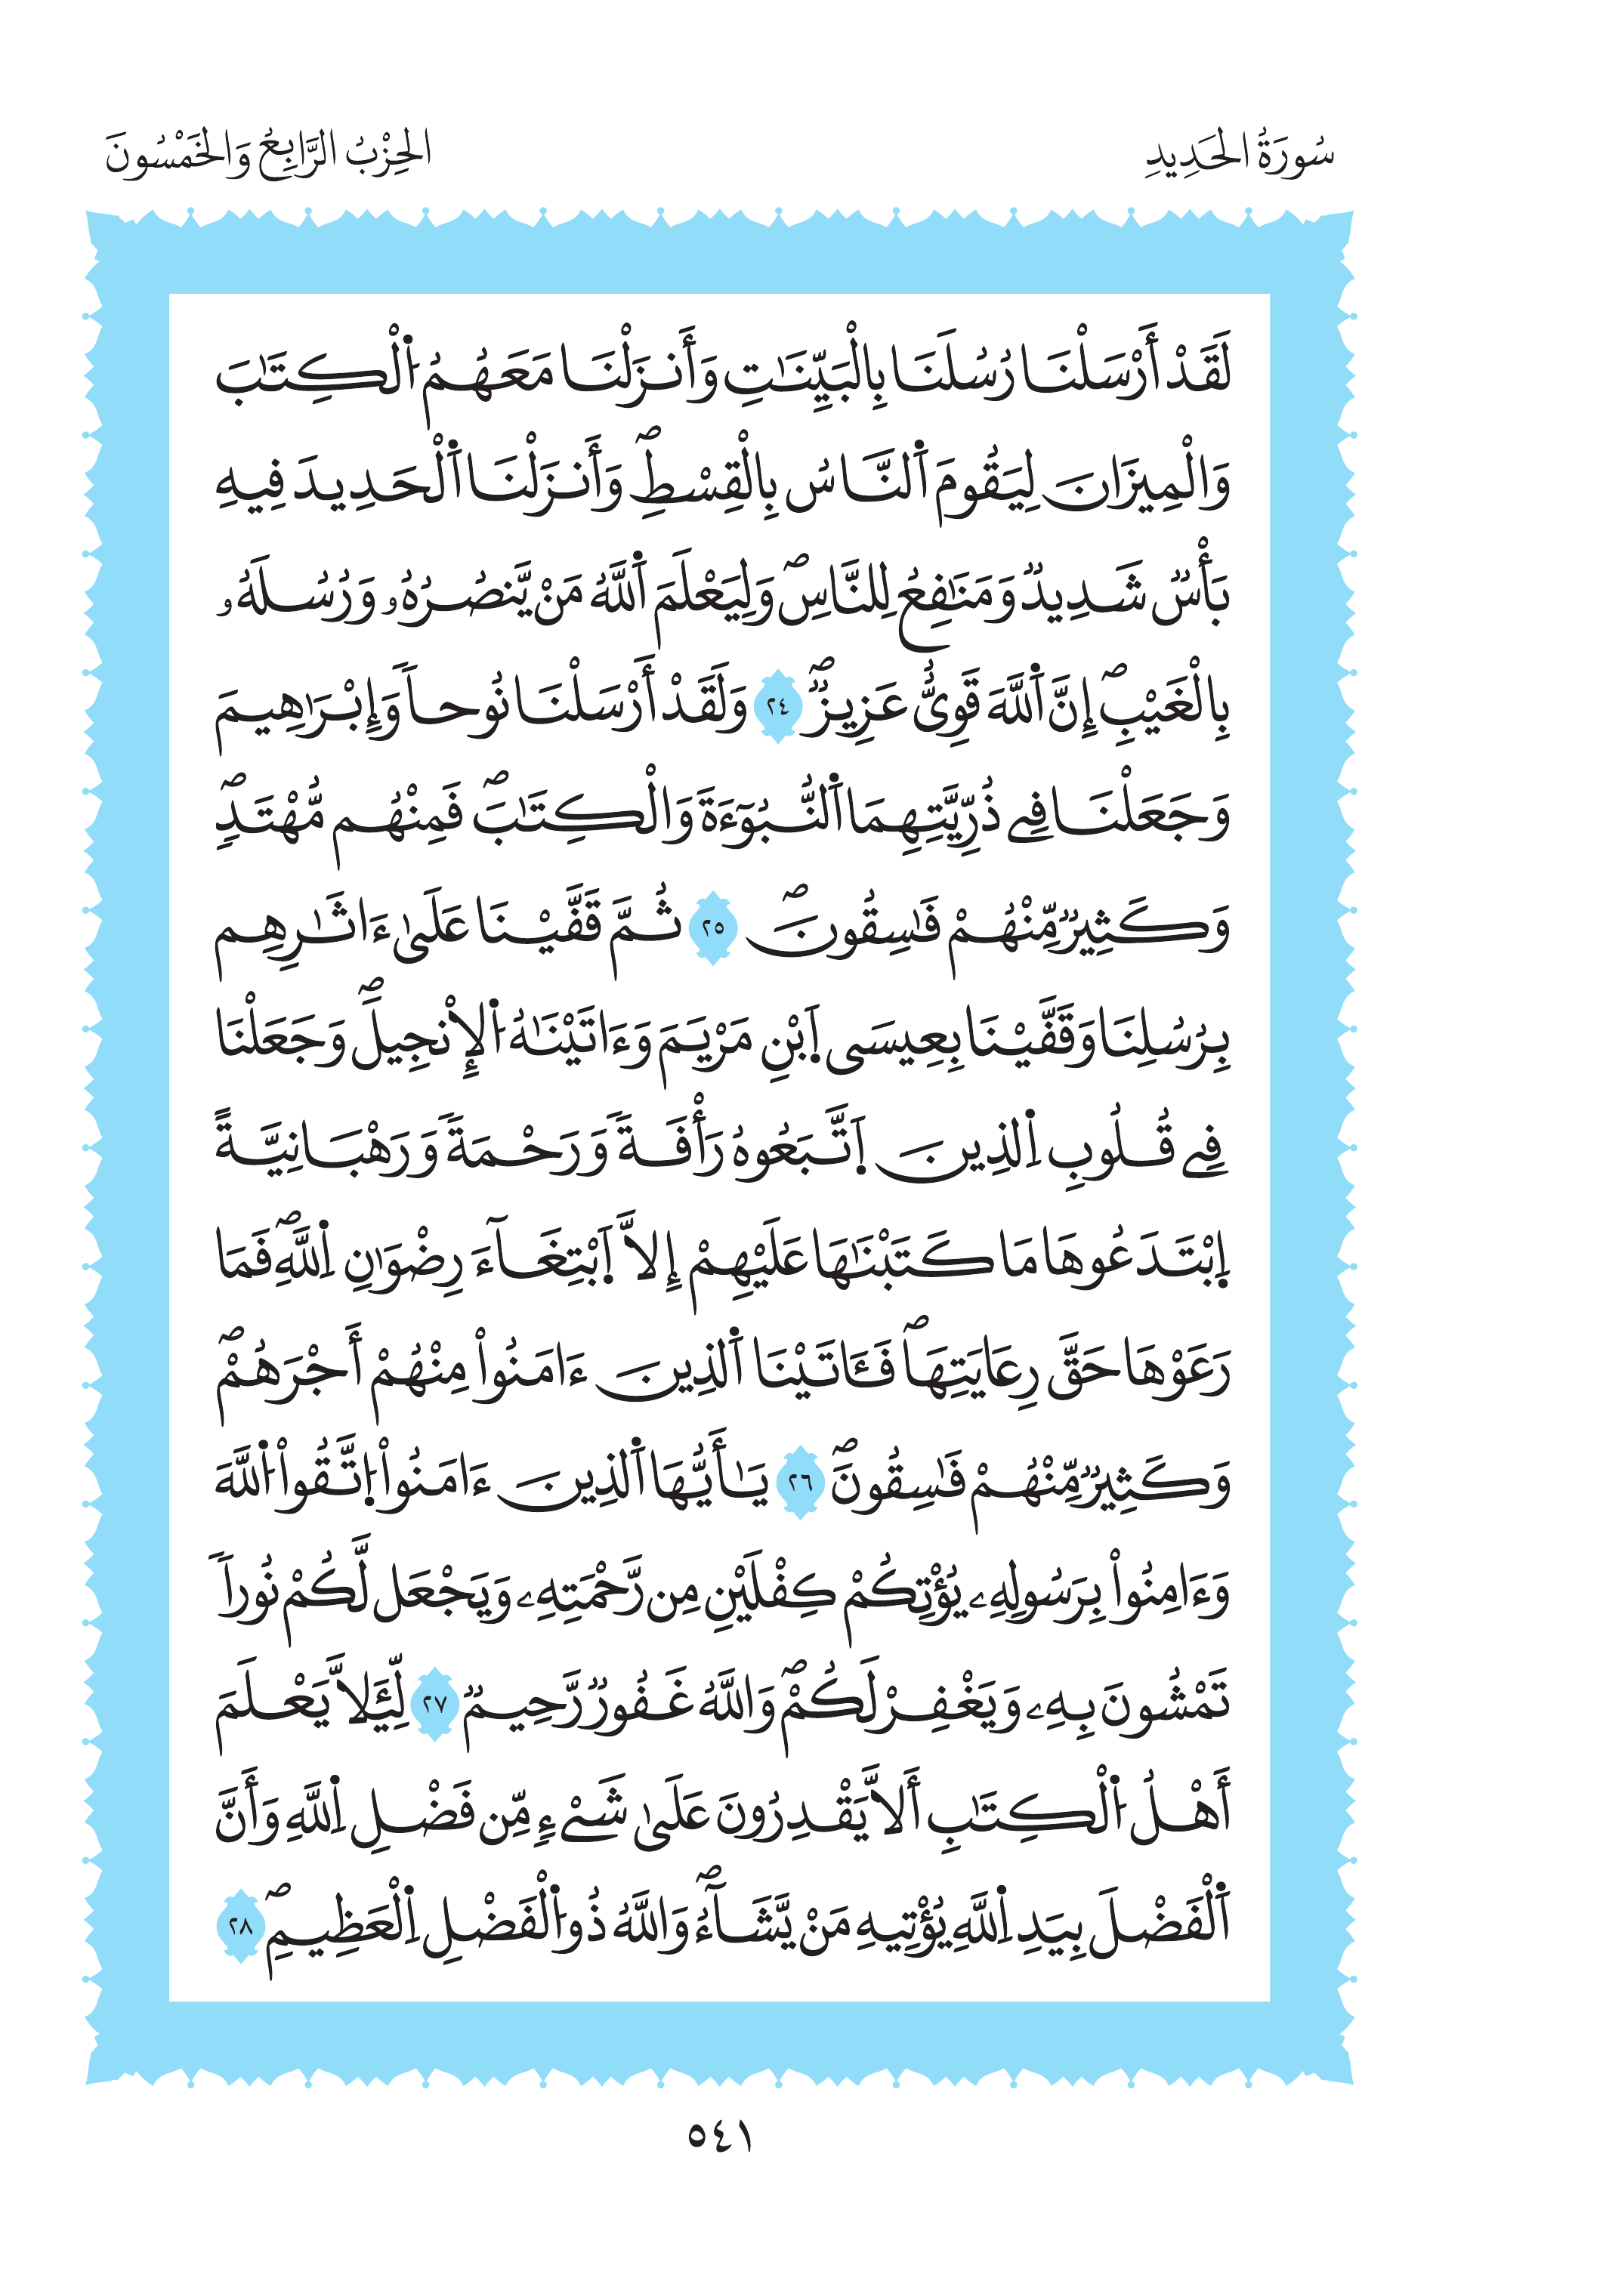 سُورَةُ الحَدِيدِ
الحِزْبُ الرَّابِعُ وَالخَمْسُونَ
لَقَدْ أَرْسَلْنَا رُسُلَنَا بِالْبَيِّنَٰتِ وَأَنزَلْنَا مَعَهُمُ اُ۬لْكِتَٰبَ
وَالْمِيزَانَ لِيَقُومَ اَ۬لنَّاسُ بِالْقِسْطِۖ وَأَنزَلْنَا اَ۬لْحَدِيدَ فِيهِ
بَأْسٞ شَدِيدٞ وَمَنَٰفِعُ لِلنَّاسِۖ وَلِيَعْلَمَ اَ۬للَّهُ مَنْ يَّنصُرُهُۥ وَرُسُلَهُۥ
بِالْغَيْبِۖ إِنَّ اَ۬للَّهَ قَوِيٌّ عَزِيزٞۖ ٢٤ وَلَقَدْ أَرْسَلْنَا نُوحاٗ وَإِبْرَٰهِيمَ
وَجَعَلْنَا فِے ذُرِّيَّتِهِمَا اَ۬لنُّبُوٓءَةَ وَالْكِتَٰبَۖ فَمِنْهُم مُّهْتَدٖۖ
وَكَثِيرٞ مِّنْهُمْ فَٰسِقُونَۖ ٢٥ ثُمَّ قَفَّيْنَا عَلَىٰ ءَاثَٰرِهِم
بِرُسُلِنَا وَقَفَّيْنَا بِعِيسَى اَ۪بْنِ مَرْيَمَ وَءَاتَيْنَٰهُ اُ۬لْإِنجِيلَۖ وَجَعَلْنَا
فِے قُلُوبِ اِ۬لذِينَ اَ۪تَّبَعُوهُ رَأْفَةٗ وَرَحْمَةٗ وَرَهْبَانِيَّةً
اِ۪بْتَدَعُوهَا مَا كَتَبْنَٰهَا عَلَيْهِمْ إِلَّا اَ۪بْتِغَآءَ رِضْوَٰنِ اِ۬للَّهِۖ فَمَا
رَعَوْهَا حَقَّ رِعَايَتِهَاۖ فَـَٔاتَيْنَا اَ۬لذِينَ ءَامَنُواْ مِنْهُمْ أَجْرَهُمْۖ
وَكَثِيرٞ مِّنْهُمْ فَٰسِقُونَۖ ٢٦ يَٰأَيُّهَا اَ۬لذِينَ ءَامَنُواْ اُ۪تَّقُواْ اُ۬للَّهَ
وَءَامِنُواْ بِرَسُولِهِۦ يُؤْتِكُمْ كِفْلَيْنِ مِن رَّحْمَتِهِۦ وَيَجْعَل لَّكُمْ نُوراٗ
تَمْشُونَ بِهِۦ وَيَغْفِرْ لَكُمْۖ وَاللَّهُ غَفُورٞ رَّحِيمٞ ٢٧ لِّئَلَّا يَعْلَمَ
أَهْلُ اُ۬لْكِتَٰبِ أَلَّا يَقْدِرُونَ عَلَىٰ شَےْءٖ مِّن فَضْلِ اِ۬للَّهِ وَأَنَّ
اَ۬لْفَضْلَ بِيَدِ اِ۬للَّهِ يُؤْتِيهِ مَنْ يَّشَآءُۖ وَاللَّهُ ذُو اُ۬لْفَضْلِ اِ۬لْعَظِيمِۖ ٢٨
٥٤١